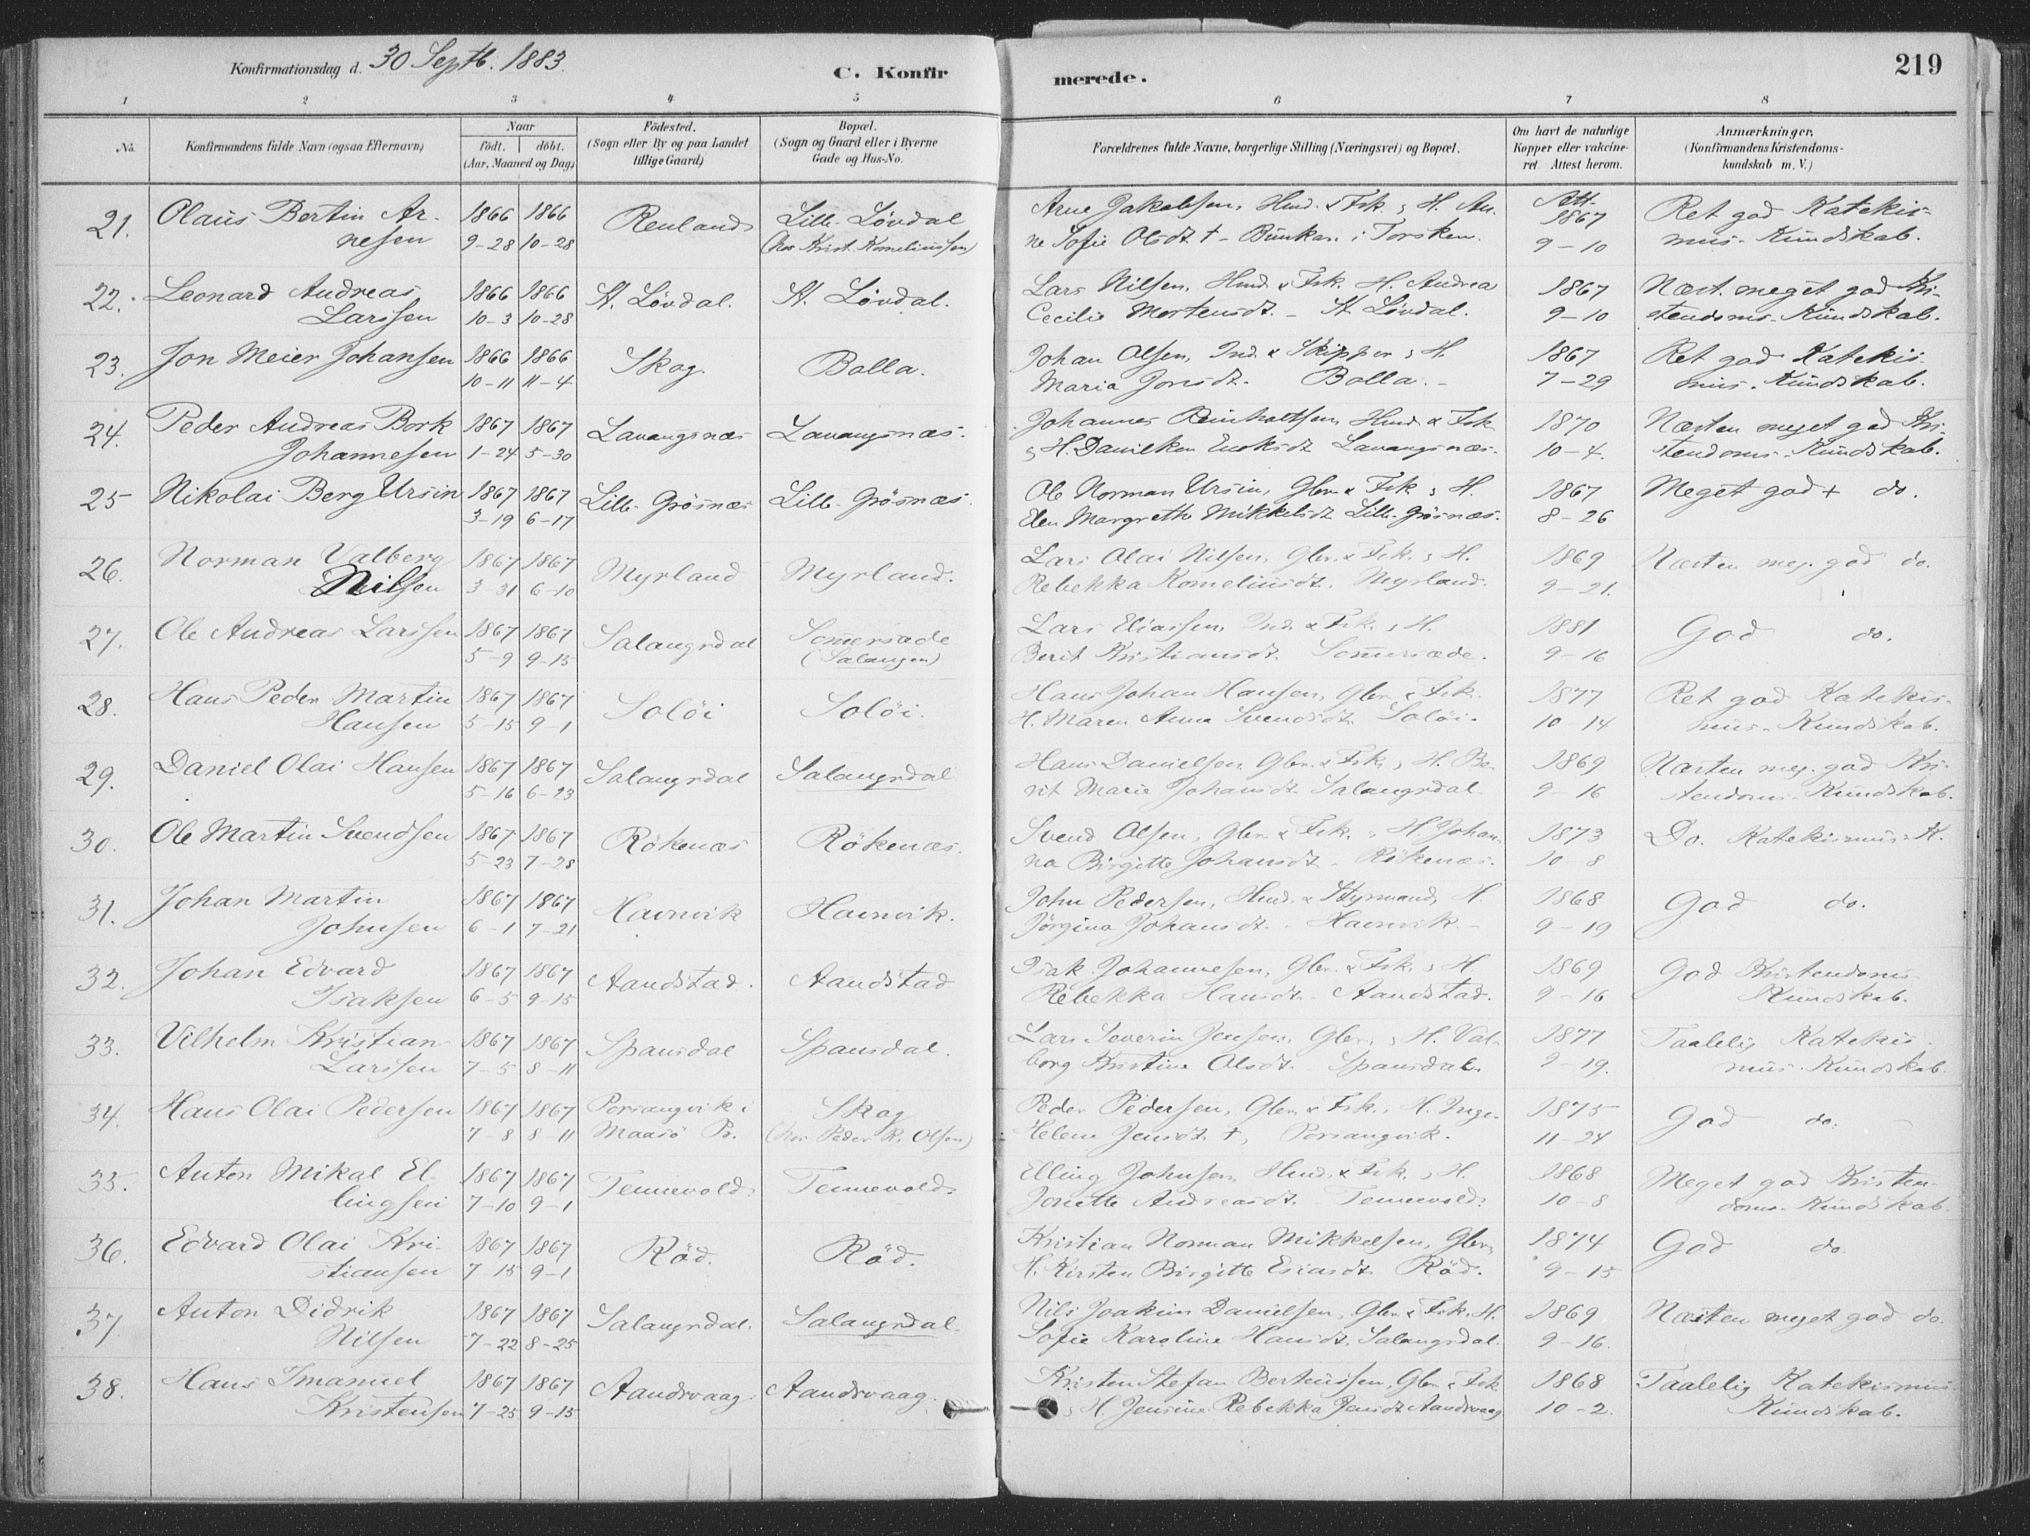 Konfirmationsdag d. 30 Septb. 1883. C. Konfir
merede. 219
1 2 3 4 5 6 7 8
No. Konfirmandens fulde Navn (ogsaa Efternavn) Naar födt. döbt. (Aar, Maaned og Dag) Födested. (Sogn eller By og paa Landet tillige Gaard) Bopæl. (Sogn og Gaard eller i Byerne Gade og Hus-No. Forældrenes fulde Navne, borgerlige Stilling (Næringsvei) og Bopæl. Om havt de naturlige Kopper eller vakcineret Attest herom. Anmærkninger, (Konfirmandens Kristendomskundskab m. V.)
21. Olaus Bertin Ar- 1866 1866 Renland Lille Lövdal Arne Jakobsen, Hmd. & Fsk. , H. An- Att. 1867 Ret god Katekis-
nesen 9-28 10-28 (hos Krist. Korneliussen) ne Sofie Olsdt † - Bunkan i Torsken. 9-10 mus-Kundskab.
22. Leonard Andreas 1866 1866 St. Lövdal. St. Lövdal. Lars Nilsen, Hmd. & Fsk. H. Andrea 1867 Næst. meget god Kri-
Larssen 10-3 10-28 Cecilie Mortensdt. - St. Lövdal. 9-10 stendoms-Kundskab.
23. Jon Meier Johansen 1866 1866 Skog. Bolla. Johan Olsen, Ind. & Skipper , H. 1867 Ret god Katekis-
10-11 11-4 Maria Jonsdt. Bolla. - 7-29 mus-Kundskab.
24. Peder Andreas Bork 1867 1867 Lavangsnæs Lavangsnæs. Johannes Reinholtsen Hmd. & Fsk 1870 Næsten meget god Kri-
Johannesen 1-24 5-30 , H. Danilken Enoksdt Lavangsnæs. 10-4. stendoms-Kundskab.
25 Nikolai Berg Ursin 1867 1867 Lille-Grösnæs Lille-Grösnæs. Ole Norman Ursin, Gbr. & Fsk , H. 1867 Meget god + do.
3-19 6-17 Elen Margrethe Mikkelsdt Lille Grösnæs. 8-26
26. Norman Valberg 1867 1867 Myrland Myrland. Lars Olai Nilsen, Gbr. & Fsk. , H. 1869 Næsten meg. god do.
Nilsen 3-31 6-10 Rebekka Korneliusdt. Myrland. 9-21.
27. Ole Andreas Larssen 1867 1867 Salangsdal Somersæde Lars Eliassen, Ind. & Fsk. , H. 1881 God do.
5-9 9-15 (Salangen) Berit Kristiansdt. Somersæde. 9-16
28. Hans Peder Martin 1867 1867 Solöi Solöi. Hans Johan Hansen, Gbr. & Fsk. 1877 Ret god Katekis-
Hansen 5-15 9-1 H. Maren Anna Svendsdt. Solöi. 10-14 mus-Kundskab.
29. Daniel Olai Hansen 1867 1867 Salangsdal Salangsdal Hans Danielsen Gbr. & Fsk. , H. Be- 1869 Næsten meg. god Kri-
5-16 6-23 rit Marie Johansdt. Salangsdal. 9-16 stendoms-Kundskab.
30. Ole Martin Svendsen 1867 1867 Rökenæs Rökenæs. Svend Olsen, Gbr. & Fsk. , H. Johan- 1873 Do. Katekismus-K.
5-23 7-28 na Birgitte Johansdt. Rökenæs. 10-8
31. Johan Martin 1867 1867 Havnvik Havnvik. John Pedersen, Hmd. & Styrmand, H. 1868 God do.
Johnsen 6-1 7-21 Jörgina Johansdt. - Havnvik. - 9-19
32. Johan Edvard 1867 1867 Aandstad. Aandstad Isak Johannesen, Gbr. & Fsk. , H. 1869 God Kristendoms-
Isaksen 6-5 9-15 Rebekka Hansdt. Aandstad. 9-16 Kundskab.
33. Vilhelm Kristian 1867 1867 Spansdal Spansdal. Lars Severin Jensen, Gbr. , H. Val- 1877 Taalelig Katekis-
Larssen 7-5 8-11 borg Kristine Olsdt. Spansdal. 9-19. mus-Kundskab.
34. Hans Olai Pedersen 1867 1867 Porsangvik i Skog Peder Pedersen, Gbr. & Fsk., H. Inge- 1875 God do. -
7-8 8-11 Maasö Pr. (hos Peder R. Olsen) Helene Jensdt. †, Porsangvik. 11-24
35. Anton Mikal El- 1867 1867 Tennevold Tennevold. Elling Johnsen, Hmd. & Fsk. , H. 1868 Meget god Kristen-
lingsen 7-10 9-1 Jonette Andreasdt. Tennevold. 10-8 doms-Kundskab.
36. Edvard Olai Kri- 1867 1867 Röd. Röd. Kristian Norman Mikkelsen, Gbr, 1874 God do.
stiansen 7-15 9-1 H. Kirsten Birgitte Esiasdt. Röd. 9-15
37 Anton Didrik 1867 1867 Salangsdal. Salangsdal. Nils Joakim Danielsen, Gbr. & Fsk, H. 1869 Næsten meget god do.
Nilsen 7-22 8-25 Sofie Karoline Hansdt. Salangsdal. 9-16.
38. Hans Imanuel 1867 1867 Aandsvaag. Aandsvaag. Kristen Stefan Berteussen, Gbr. & Fsk 1868 Taalelig Katekismus
Kristensen 7-25 9-15 , H. Jensine Rebekka Jensdt Aandsvaag 10-2. Kundskab.